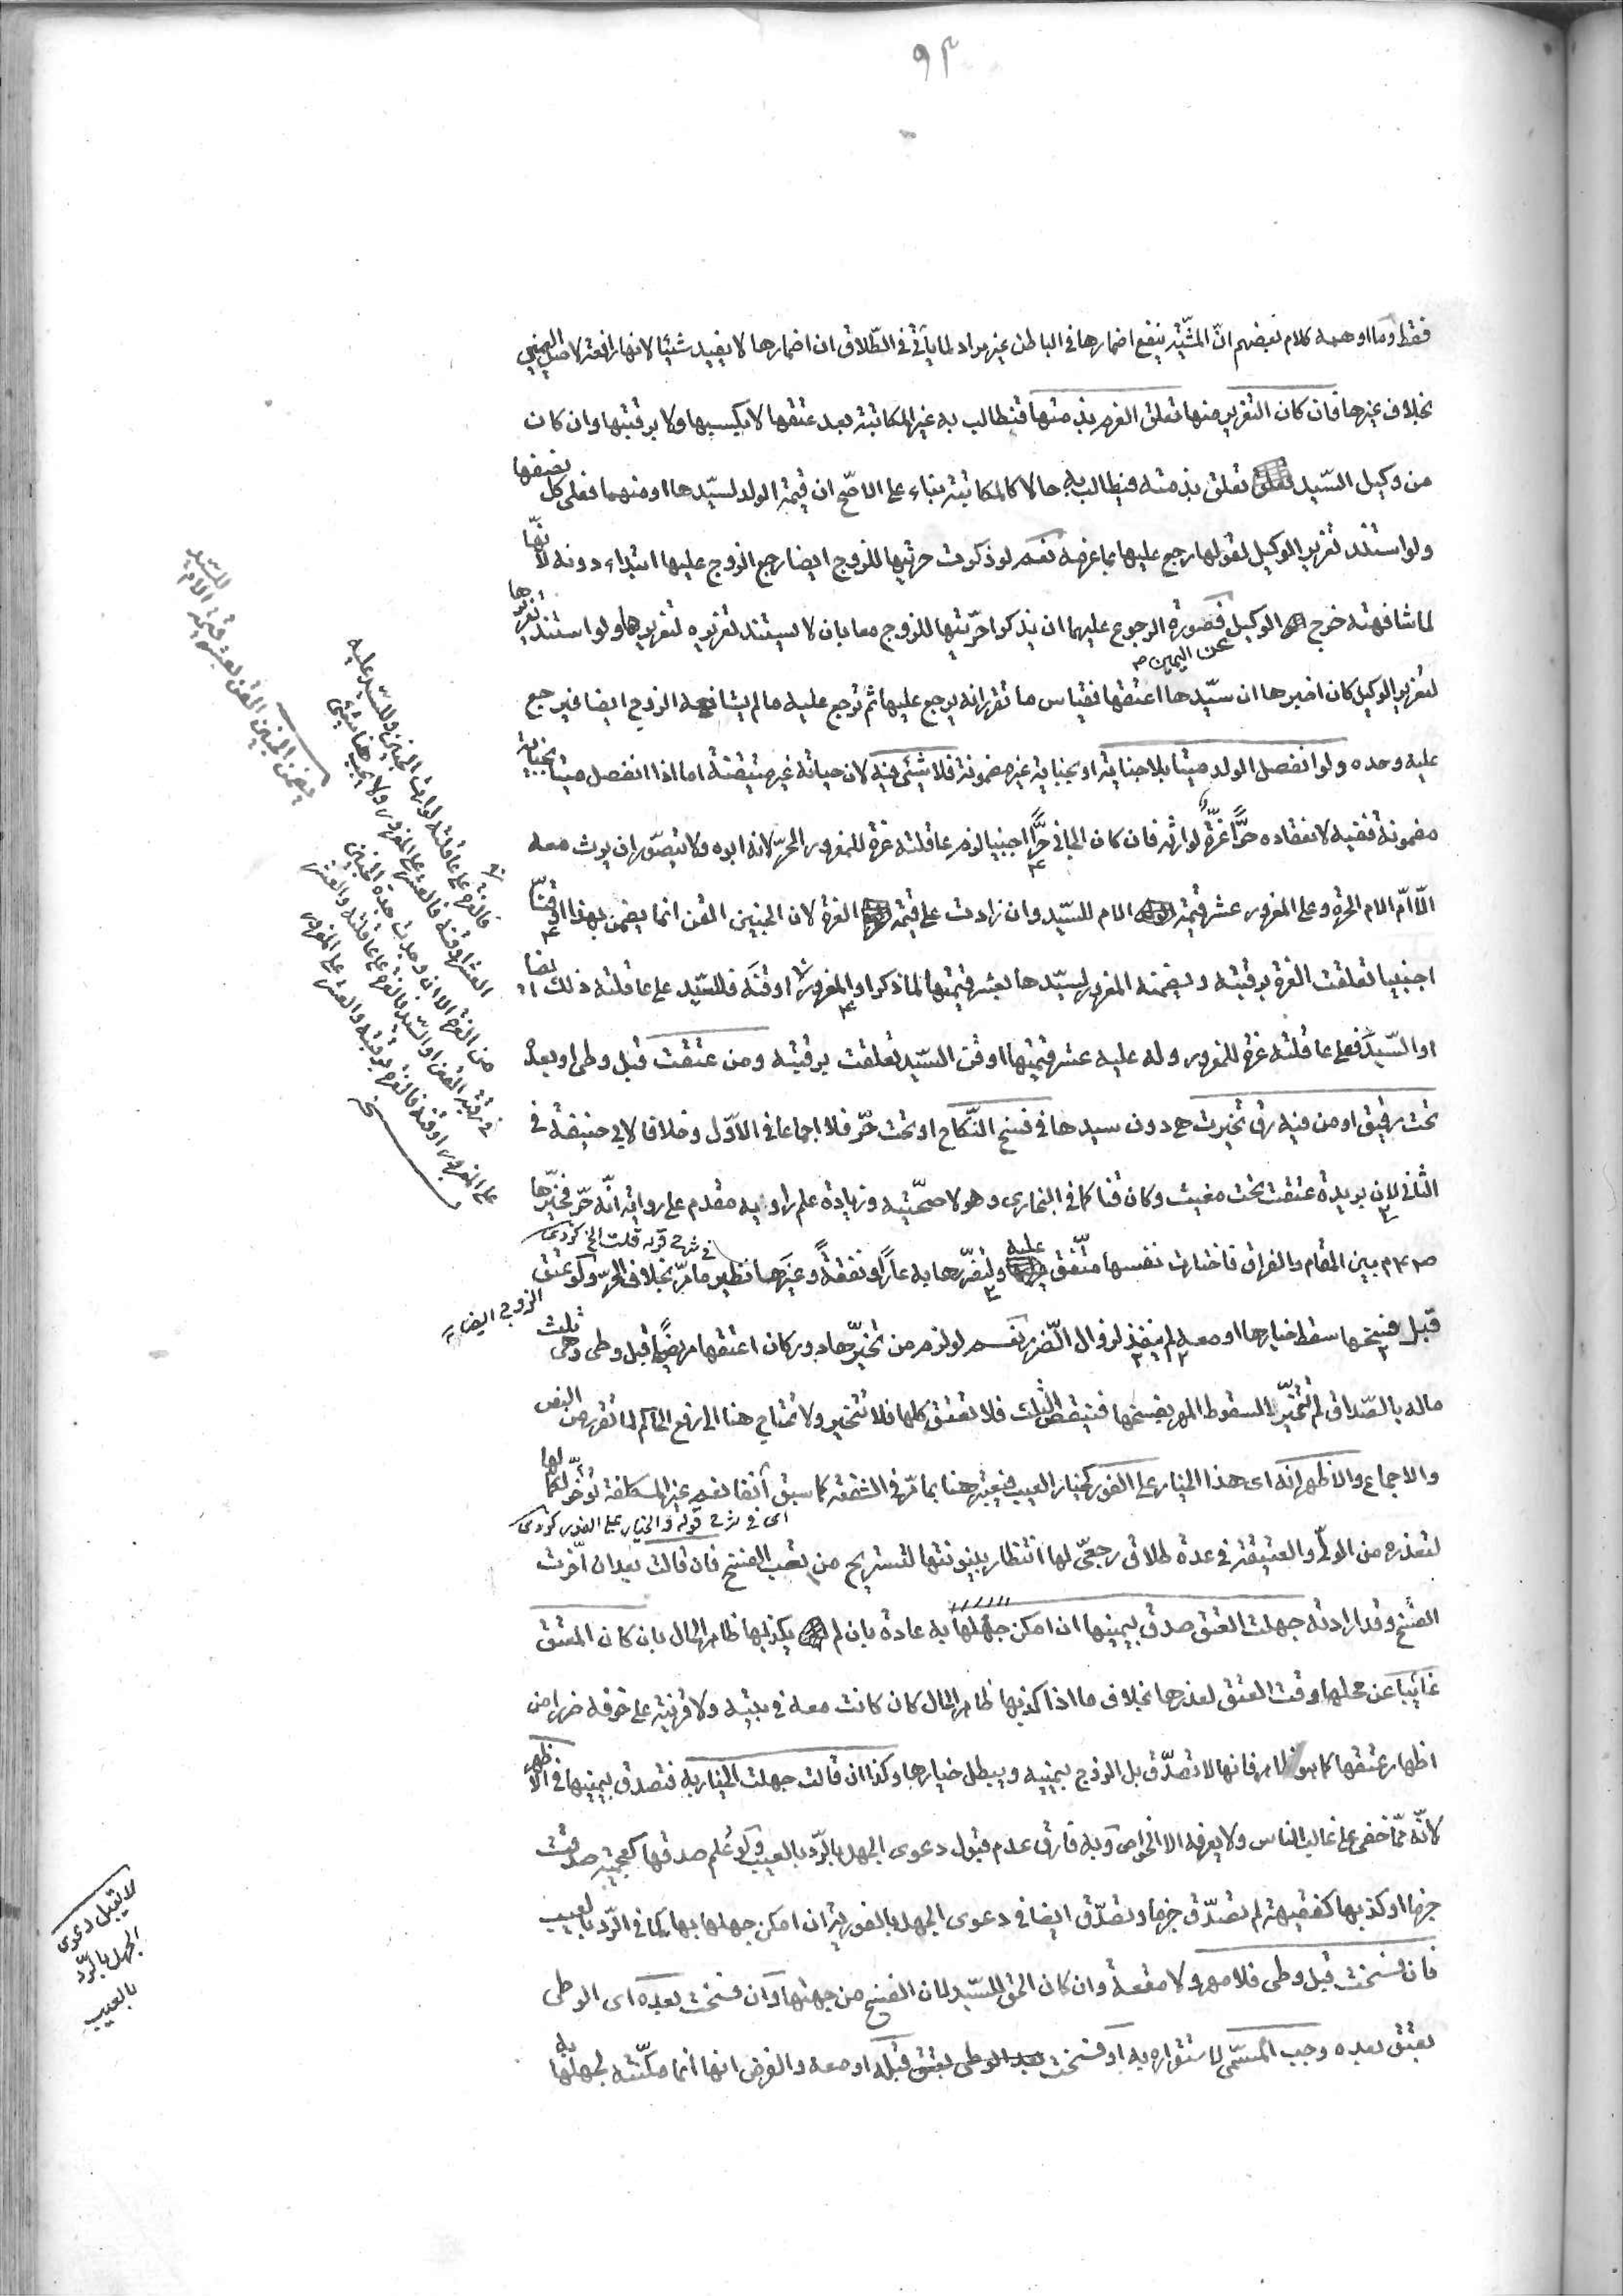 ٩٣
فقط وما اوهمه كلام بعضهم انّ المشّيّة ينفع اضمارها في الباطن غير مراد لما يأتي في الطّلاق ان اضمارها لا يفيد شيئا لانها رافعة لاصل اليمين
بخلاف غيرها فان كان التغرير منها تعلق الغرم بذمتها فتطالب به غير المكاتبة بعد عتقها لا بكسبها ولا برقبتها وان كان
من وكيل السّيد تعلق بذمته فيطالب به حالا كالمكاتبة بناء على الاصّح ان قيمة الولد لسيّدها او منهما فعلى كل نصفها
ولو استند تغرير الوكيل لقولها رجع عليها بما غرمه نعم لو ذكرت حريتها للزوج ايضا رجع الزوج عليها ابتداء دونه لانّها
لما شافهته خرج الوكيل عن اليمين فصورة الرجوع عليهما ان يذكرا حرّيتها للزوج معا بان لا يستند تغريره لتغريرها ولو استند تغريرها
لتغرير الوكيل كان اخبرها ان سيّدها اعتقها فقياس ما تقرر انه يرجع عليها ثم ترجع عليه ما لم يشافهه الزوج ايضا فيرجع
عليه وحده ولو انفصل الولد ميتا بلا جناية او بجناية غير مضمونة فلا شئ فيه لان حياته غير متيقنة اما اذا انفصل ميتا بجناية
مضمونة ففيه لانعقاده حرًّا غرّة لوارثه فان كان الجاني حرًّا اجنبيا لزم عاقلته غرة للمغرور الحرّ لانه ابوه ولا يتصوّر ان يرث معه
الّا امّ الام الحرّة وعلى المغرور عشر قيمة الام للسّيد وان زادت على قيمة الغرة لان الجنين القن انما يضمن بهذا او قنّا
اجنبيا تعلقت الغرة برقبته ويضمنه المغرور لسيّدها بعشر قيمتها لما ذكر او المغرور او قنّه فللسّيد على عاقلته ذلك ايضا
او السّيد فعلى عاقلته غرة للمغرور وله عليه عشر قيمتها او قن السّيد تعلقت برقبته ومن عتقت قبل وطي او بعده
تحت رقيق او من فيه رق تخيرت هي دون سيدها في فسخ النّكاح او تحت حرّ فلا اجماعا في الاوّل وخلافا لابي حنيفة في
الثاني لان بريدة عتقت تحت مغيث وكان قنا كما في البخاري وهو لاصحيّته وزيادة علم راويه مقدم على رواية انّه حر فخيّرها
صـ بين المقام والفراق فاختارت نفسها متّفق عليه ولتضرّرها به عارًا ونفقةً وغيرهما نظير ما مرّ بخلاف الحرّ ولو عتق
في شرح قوله قلت الخ كردي
الزوج ايضا
قبل فسخها سقط خيارها او معه لم ينفذ لزوال الضّرر نعم لو لزم من تخيّرها دور كان اعتقها مريضًا قبل وطي وهي ثلث
ماله بالصّداق لم تتخيّر لسقوط المهر بفسخها فينقص الثلث فلا تعتق كلها فلا تتخير ولا تحتاج هنا الى رفع الحاكم لما تقرر من النص
والاجماع والاظهر انه اى هذا الخيار على الفور كخيار العيب فيعتبر هنا بما مرّ في الشفعة كما سبق آنفا نعم غير المكلفة تؤخّر لكمالها
اى في شرح قوله والخيار على الفور كردي
لتعذره من الوليّ والعتيقة في عدة طلاق رجعيّ لها انتظار بينونتها لتستريح من تعب الفسخ فان قالت بعد ان اخّرت
الفسخ وقد ارادته جهلت العتق صدق بيمينها ان امكن جهلها به عادة بان لم يكذبها ظاهر الحال بان كان المعتق
غائبا عن محلها وقت العتق لعذرها بخلاف ما اذا كذبها ظاهر الحال كان كانت معه في بيته ولا قرينة على خوفه ضررا من
اظهار عتقها كما هو ظاهر فانها لا تصدّق بل الزوج بيمينه ويبطل خيارها وكذا ان قالت جهلت الخيار به فتصدق بيمينها في الاظهر
لانّه ممّا خفي على غالب الناس ولا يعرفه الا الخواص وبه فارق عدم قبول دعوى الجهل بالرّد بالعيب ولو علم صدقها كعجمية صدقت
جزما او كذبها كفقيهة لم تصدّق جزما وتصدّق ايضا في دعوى الجهل بالفورية ان امكن جهلها بها كما في الرّد بالعيب
فان فسخت قبل وطى فلا مهر ولا متعة وان كان الحق للسّيد لان الفسخ من جهتها وان فسخت بعده اى الوطى
بعتق بعده وجب المسمّى لاستقراره به او فسخت بعد الوطى بعتق قبله او معه والفرض انها انما مكّنته لجهلها به
يضمن الجنين القن بعشر قيمة الام
للسّيد
فالغرة على عاقلته لوارث الجنين وللسّيد عليه
العشر او قنه فالعشر على المغرور ولا يجب هنا شئ
من الغرة الا ان وجدت جدة للجنين
في رقبة القن او السّيد فالغرة على عاقلته والعشر
على المغرور او قنه فالغرة برقبته والعشر على المغرور
لا تقبل دعوى
الجهل بالرّد
بالعيب